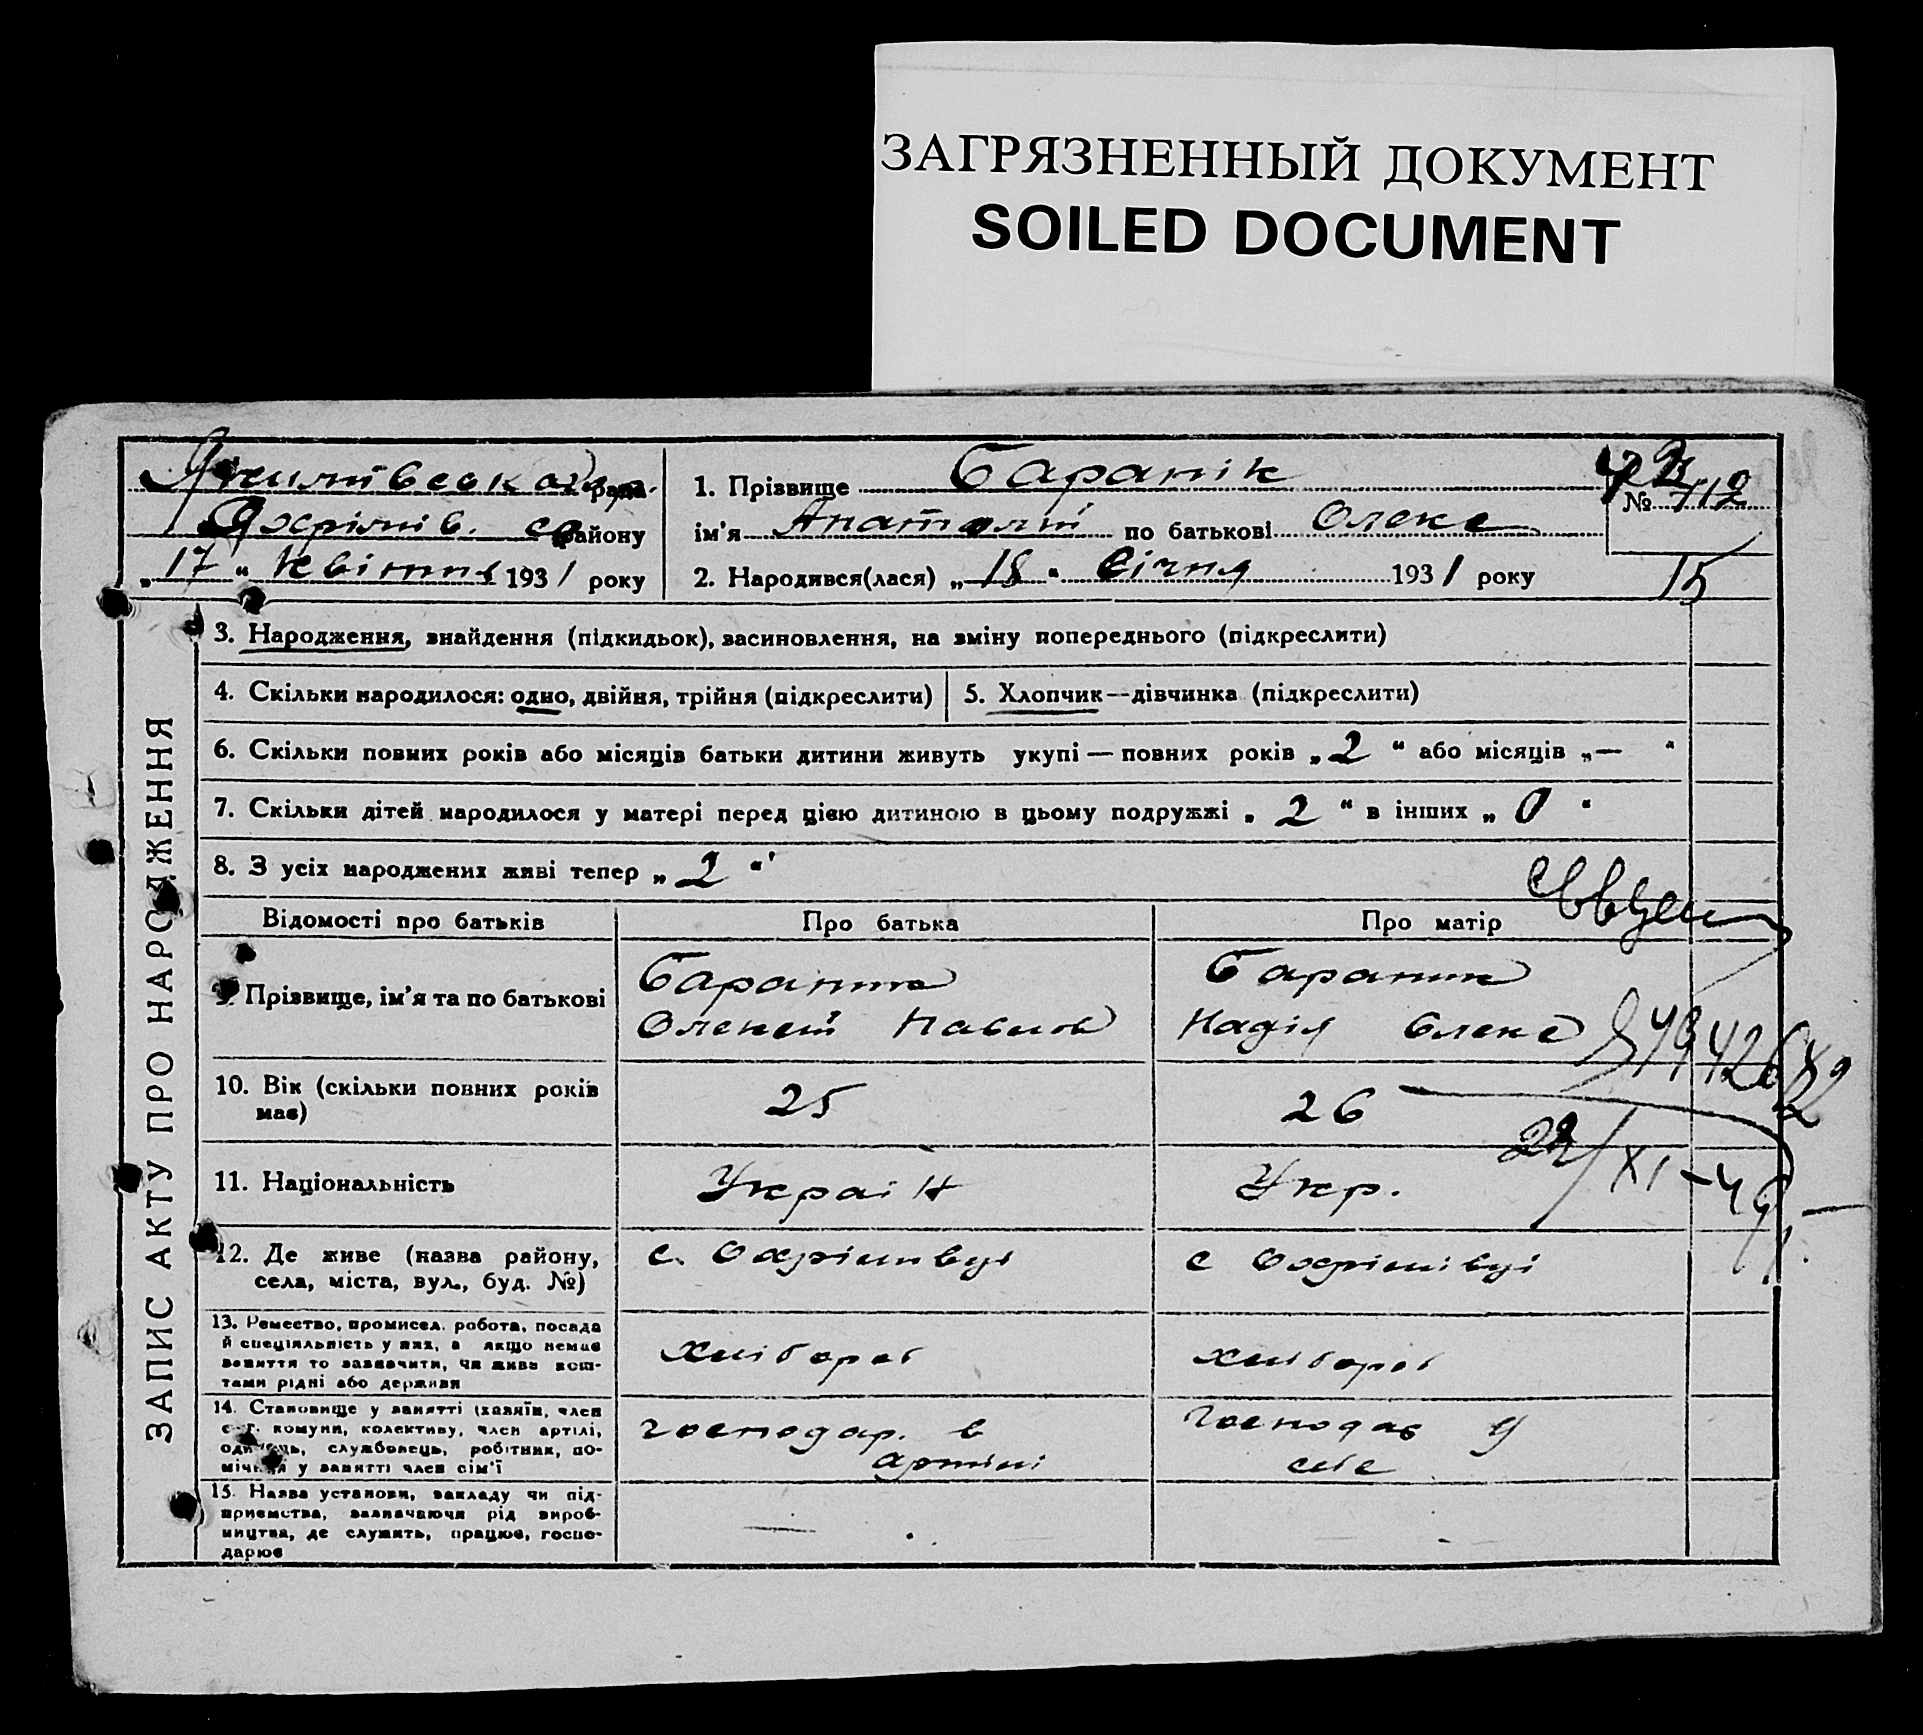 ЗАГРЯЗНЕННЫЙ ДОКУМЕНТ
SOILED DOCUMENT
рада
району
„17“ Квітня 1931 року
1. Прізвище Баранік
ім’я Анатолій по батькові Олекс
2. Народився(лася) „18“ Січня 1931 року
№ 112
15
ЗАПИС АКТУ ПРО НАРОДЖЕННЯ
3. Народження, знайдення (підкидьок), засиновлення, на зміну попереднього (підкреслити)
4. Скільки народилося: одно, двійня, трійня (підкреслити)
5. Хлопчик—дівчинка (підкреслити)
6. Скільки повних років або місяців батьки дитини живуть укупі — повних років „2“ або місяців „—“
7. Скільки дітей народилося у матері перед цією дитиною в цьому подружжі „2“ в інших „0“
8. З усіх народжених живі тепер „2“
Відомості про батьків
Про батька
Про матір
9. Прізвище, ім’я та по батькові
Бараник
Олексій Павлов
Бараник
Надія Олекс
10. Вік (скільки повних років має)
25
26
11. Національність
Україн
Укр.
XI-49
12. Де живе (назва району,
села, міста, вул., буд. №)
с. Охрімівці
с Охрімівці
13. Ремество, промисел. робота, посада
й спеціяльність у них, а якщо немає
заняття то зазначити, чи живе кош-
тами рідні або держави
хлібороб
хлібороб
14. Становище у занятті (хазяїн, член
с.-г. комуни, колективу, член артілі,
одинець, службовець, робітник, по-
мічний у занятті член сім’ї
господар. в
артілі
господар у
селе
15. Назва установи, закладу чи під-
приємства, зазначаючи рід вироб-
ництва, де служить, працює, госпо-
дарює
—